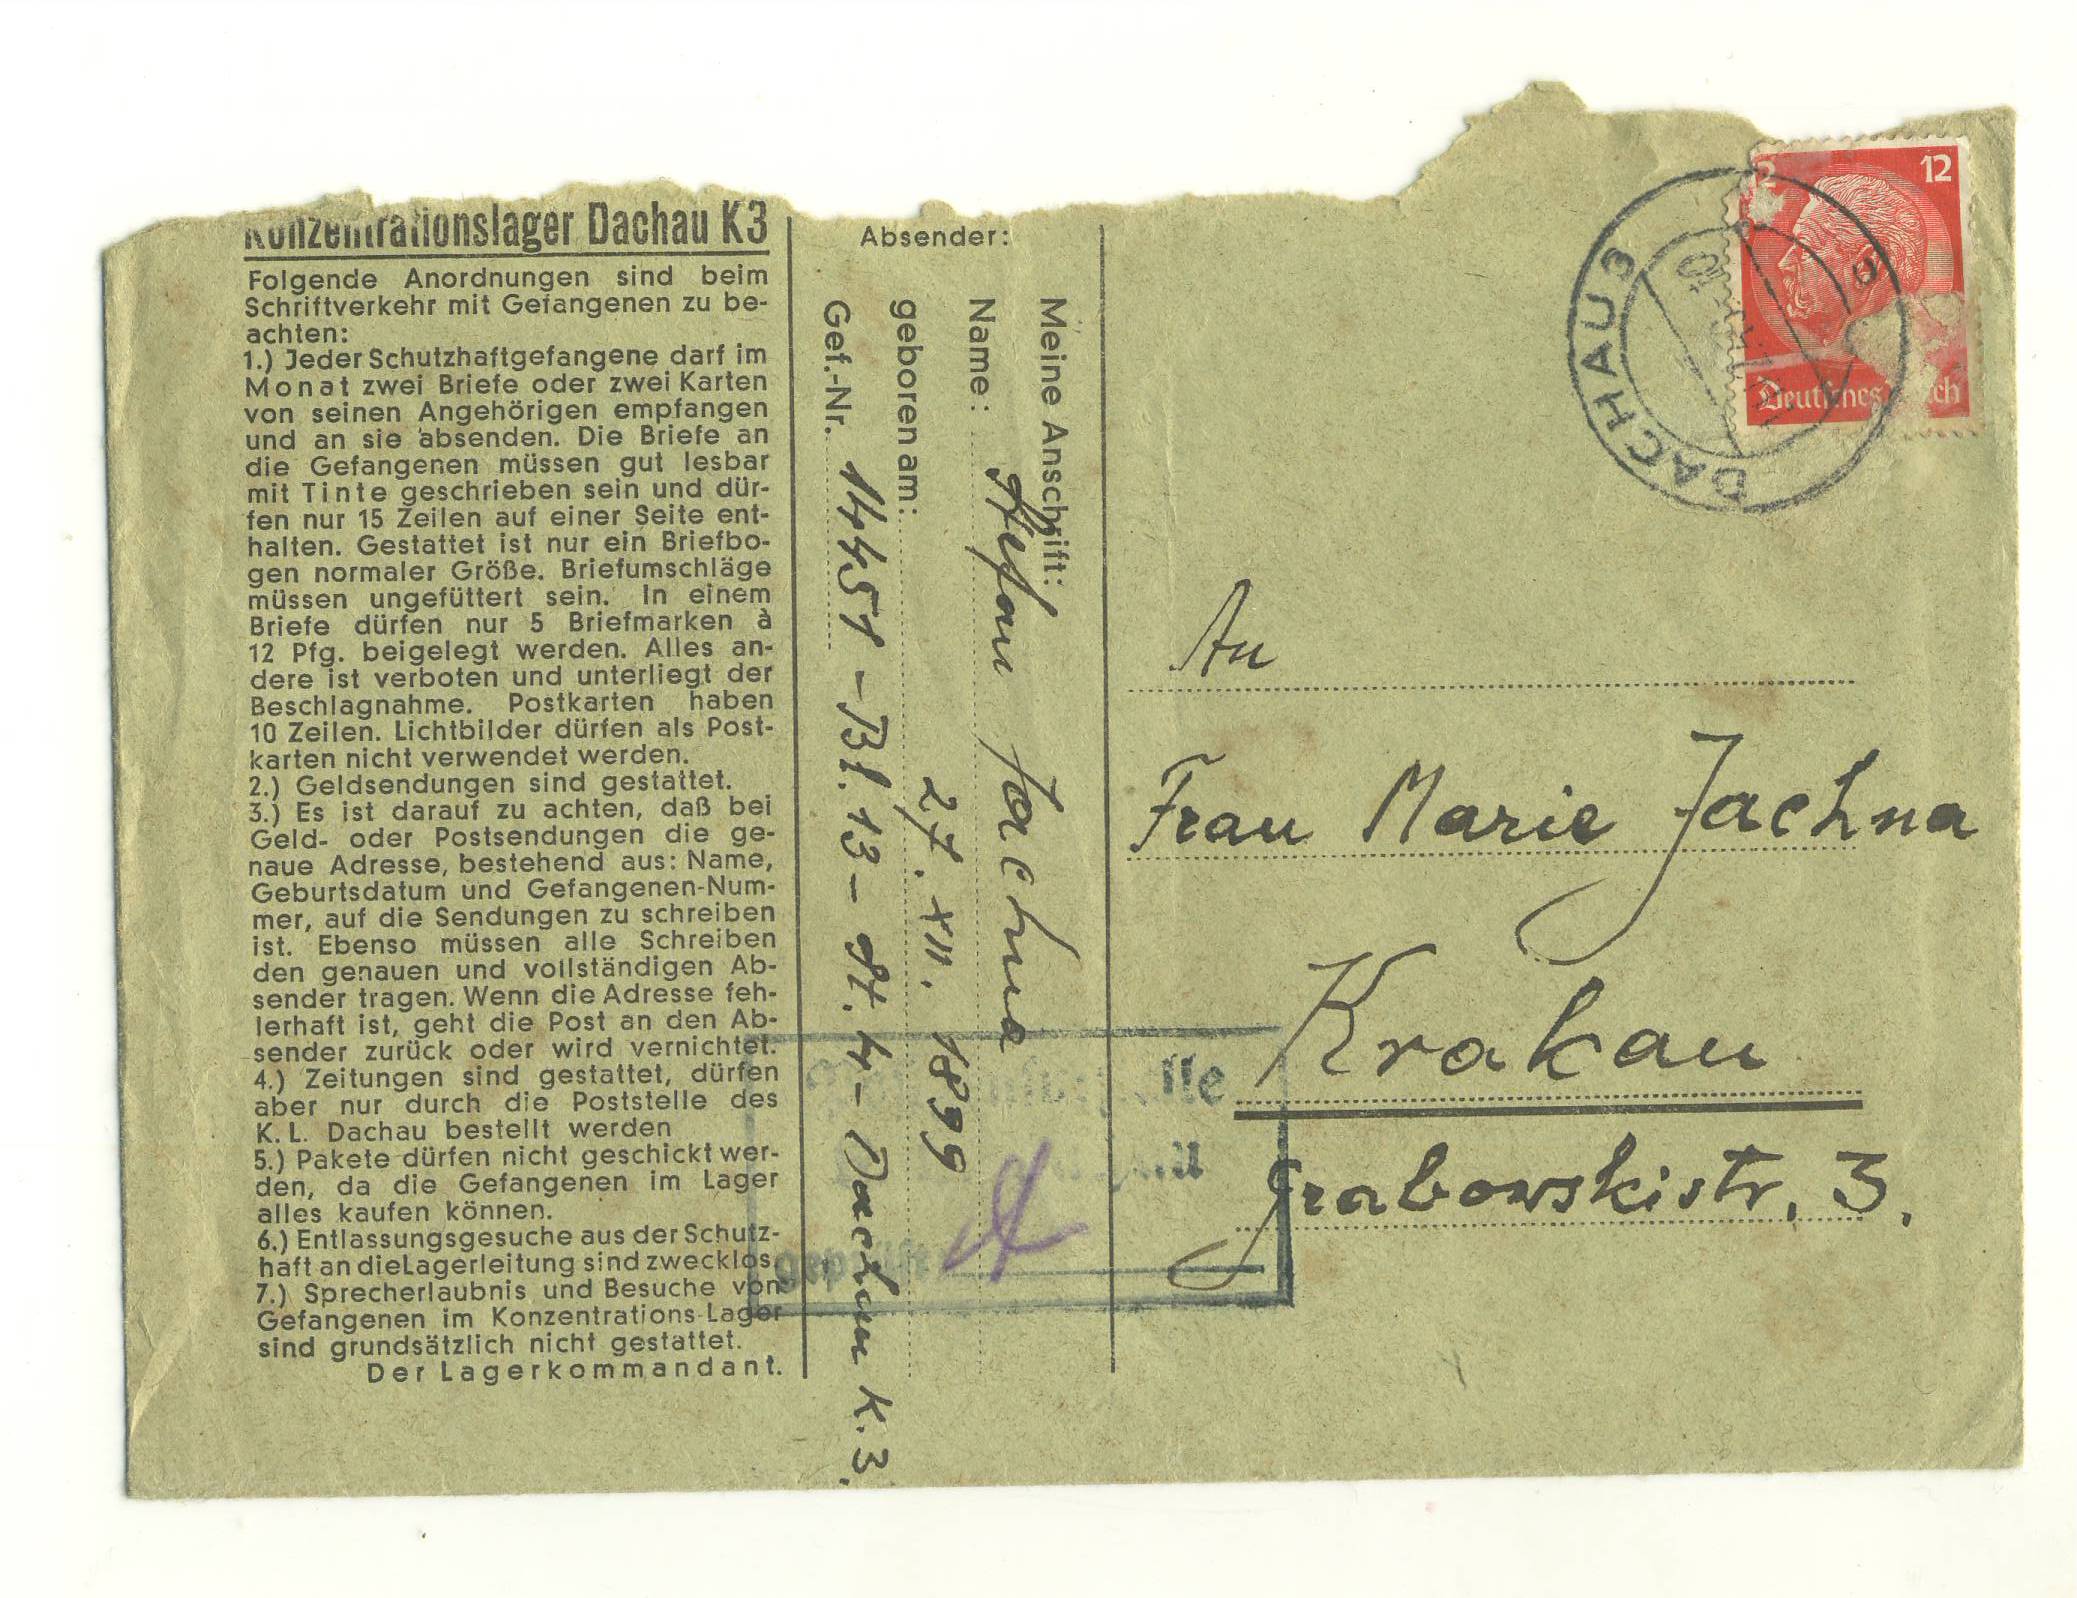 Konzentrationslager Dachau K3
Folgende Anordnungen sind beim
Schriftverkehr mit Gefangenen zu be-
achten:
1.) Jeder Schutzhaftgefangene darf im
Monat zwei Briefe oder zwei Karten
von seinen Angehörigen empfangen
und an sie absenden. Die Briefe an
die Gefangenen müssen gut lesbar
mit Tinte geschrieben sein und dür-
fen nur 15 Zeilen auf einer Seite ent-
halten. Gestattet ist nur ein Briefbo-
gen normaler Größe. Briefumschläge
müssen ungefüttert sein. In einem
Briefe dürfen nur 5 Briefmarken à
12 Pfg. beigelegt werden. Alles an-
dere ist verboten und unterliegt der
Beschlagnahme. Postkarten haben
10 Zeilen. Lichtbilder dürfen als Post-
karten nicht verwendet werden.
2.) Geldsendungen sind gestattet.
3.) Es ist darauf zu achten, daß bei
Geld- oder Postsendungen die ge-
naue Adresse, bestehend aus: Name,
Geburtsdatum und Gefangenen-Num-
mer, auf die Sendungen zu schreiben
ist. Ebenso müssen alle Schreiben
den genauen und vollständigen Ab-
sender tragen. Wenn die Adresse feh-
lerhaft ist, geht die Post an den Ab-
sender zurück oder wird vernichtet.
4.) Zeitungen sind gestattet, dürfen
aber nur durch die Poststelle des
K. L. Dachau bestellt werden
5.) Pakete dürfen nicht geschickt wer-
den, da die Gefangenen im Lager
alles kaufen können.
6.) Entlassungsgesuche aus der Schutz-
haft an die Lagerleitung sind zwecklos.
7.) Sprecherlaubnis und Besuche von
Gefangenen im Konzentrations-Lager
sind grundsätzlich nicht gestattet.
Der Lagerkommandant.
Absender:
Meine Anschrift:
Name: Stefan Jachna
geboren am: 27. XII. 1899
Gef.-Nr. 14451 - Bl. 13 - St. 4 - Dachau K. 3.
geprüft
12 12
Deutsches Reich
DACHAU 3
An
Frau Marie Jachna
Krakau
Grabowskistr. 3.